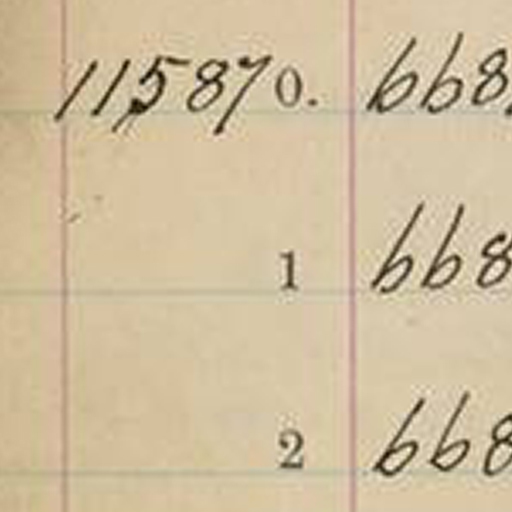 115870. 668
1 668
2 668